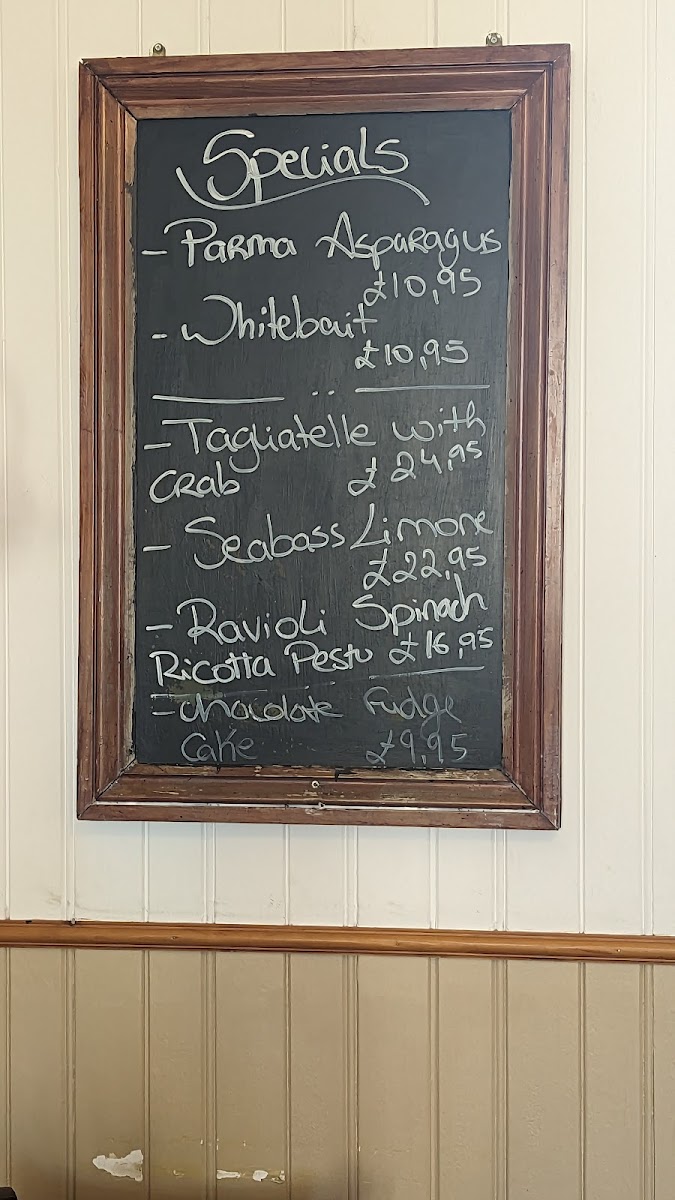 Specials
- Parma Asparagus
£10,95
- Whitebait
£10,95
- Tagliatelle with
Crab £24,95
- Seabass Limone
£22,95
- Ravioli Spinach
Ricotta Pesto £16,95
- Chocolate Fudge
Cake £9,95